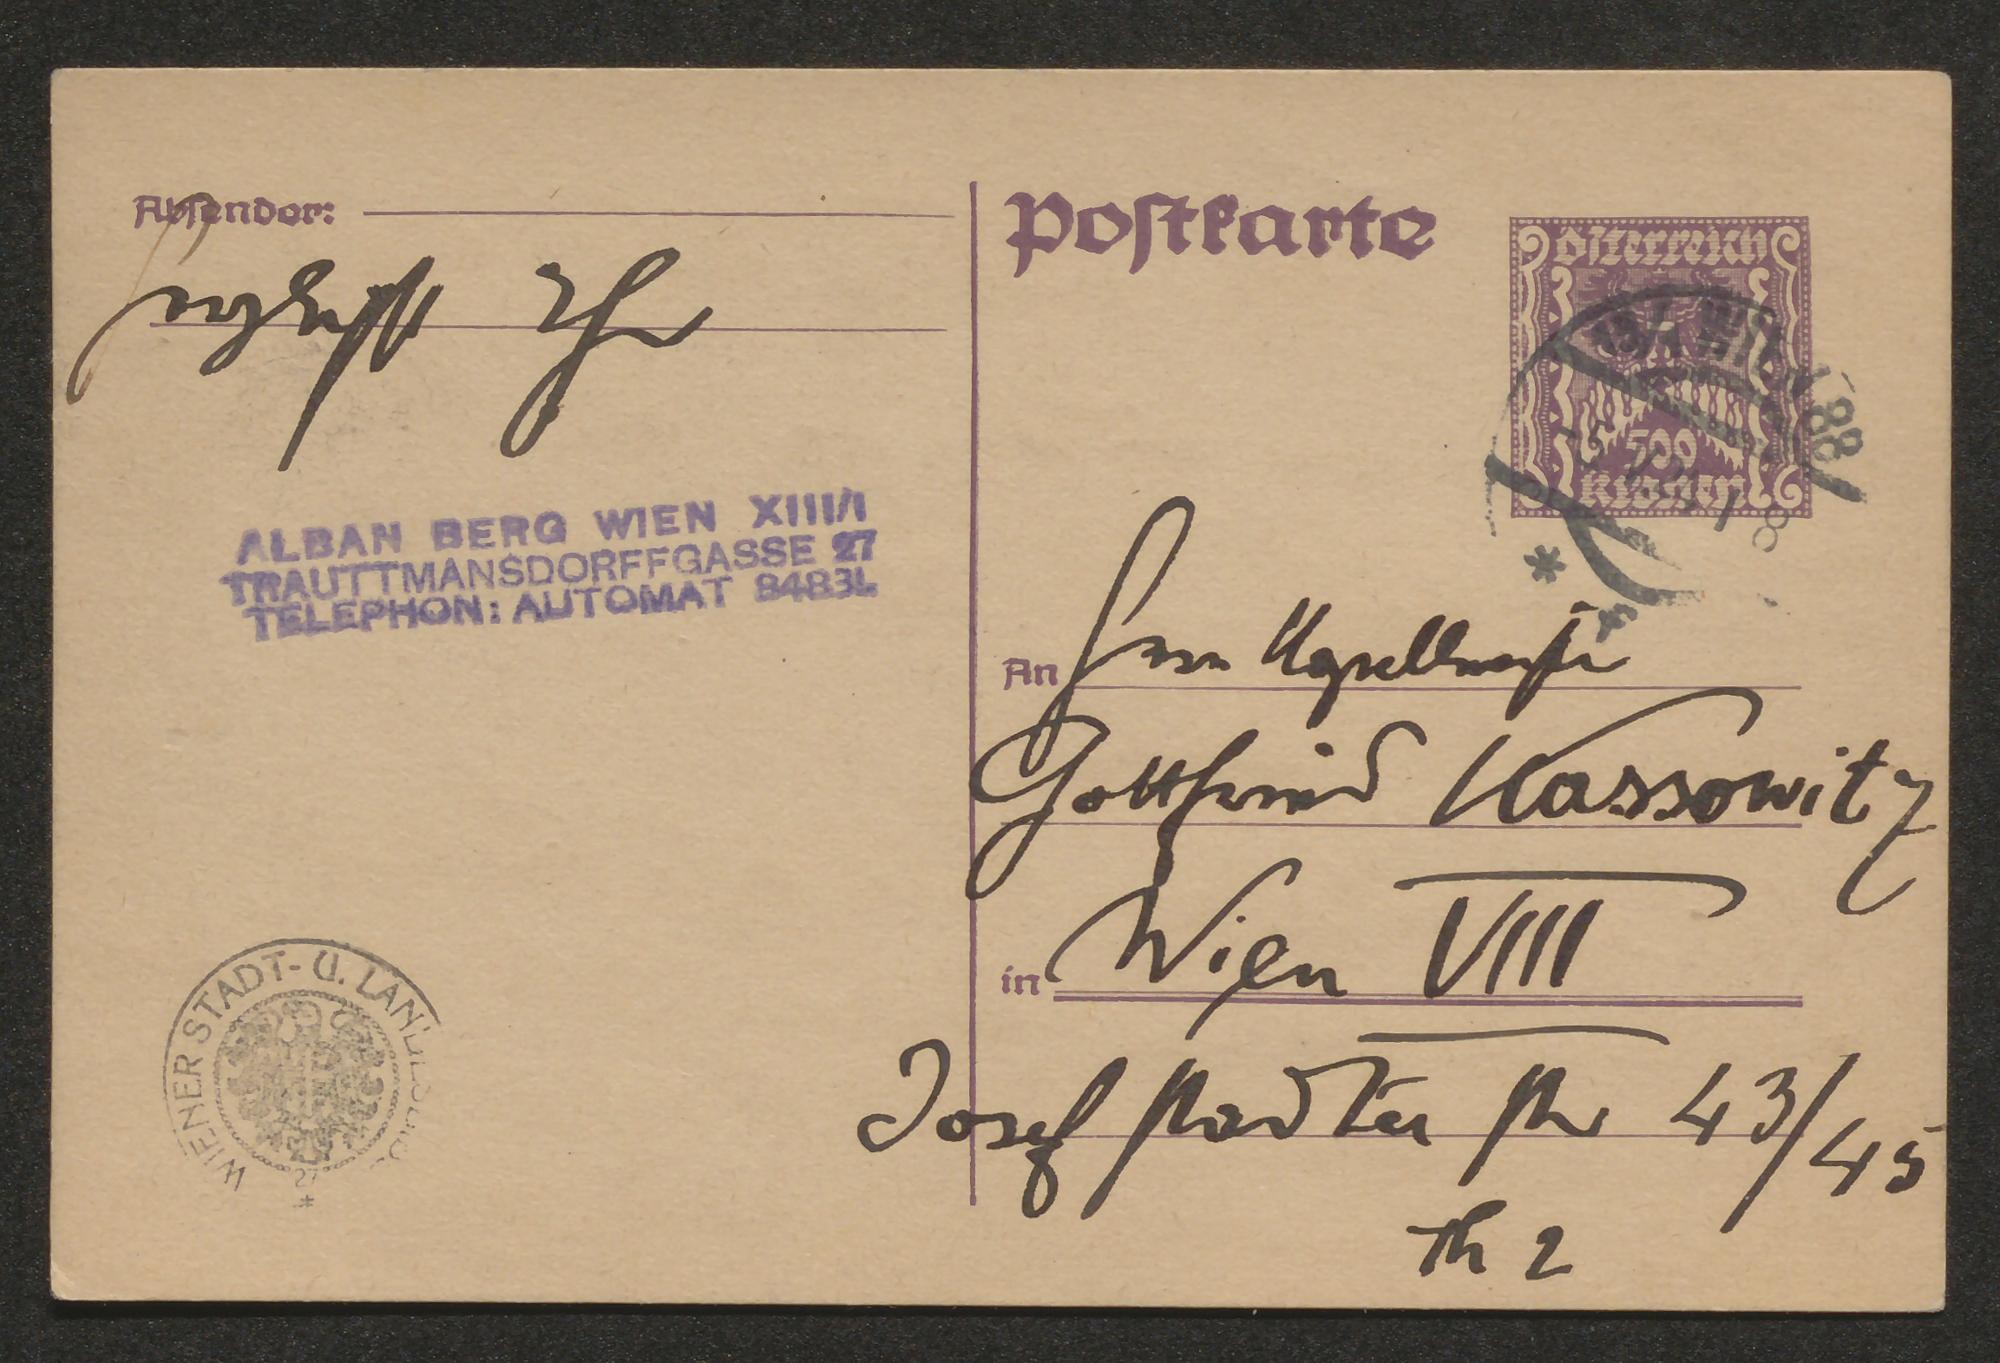 Absender:
ALBAN BERG WIEN XIII/1
TRAUTTMANSDORFFGASSE 27
TELEPHON: AUTOMAT 84831
WIENER STADT- U. LAN
27
Postkarte
Österreich
500
Kronen
WIEN 88
An Herrn Kapellmeister
Gottfried Kassowitz
in Wien VIII
Josefstädter Str 43/45
Th 2